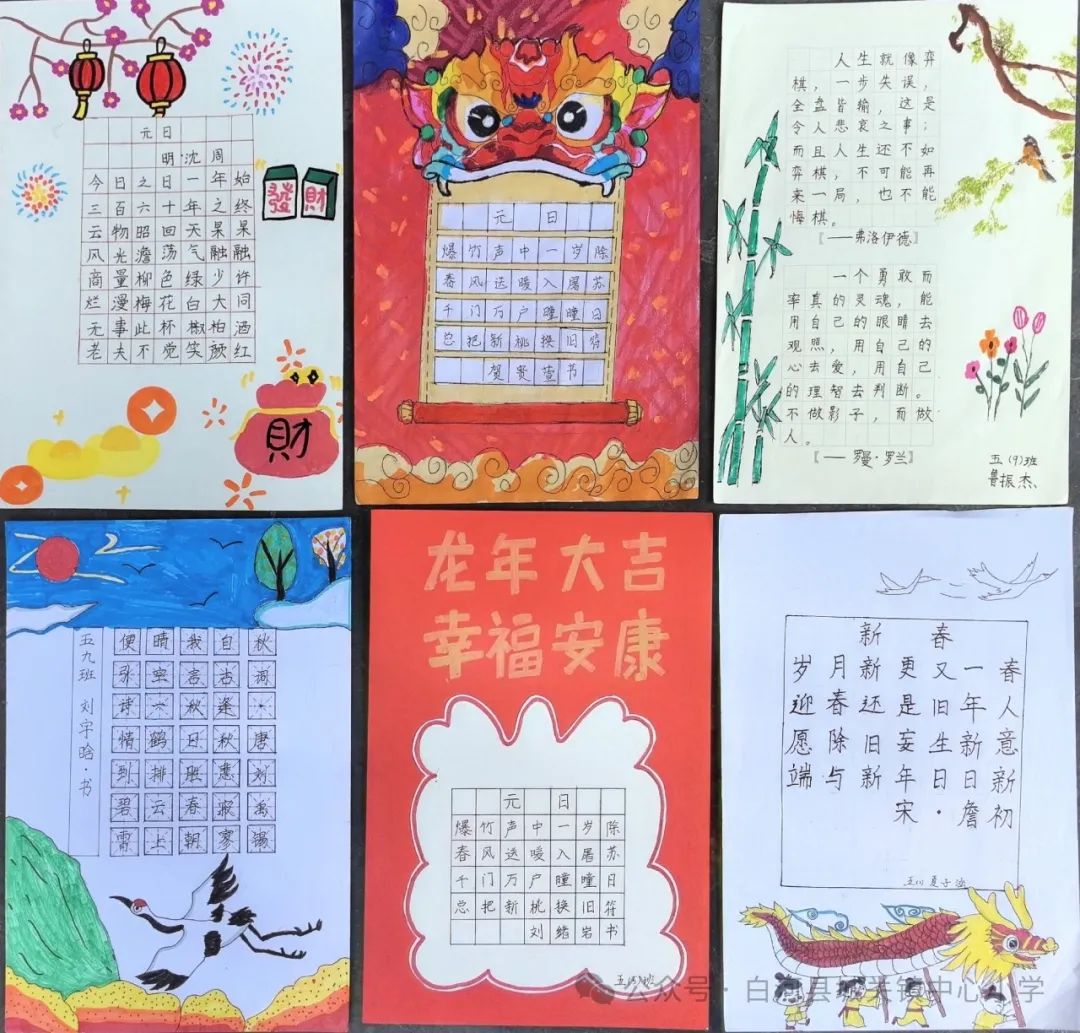 元日
明·沈周
今日之日一年始
三百六十年之终
云物昭回天果果
风光澹荡气融融
商量柳色绿少许
烂漫梅花白大同
无事此杯椒柏酒
老夫不觉笑颜红
發財
財
元日
爆竹声中一岁除
春风送暖入屠苏
千门万户瞳瞳日
总把新桃换旧符
贺贵萱书
人生就像弈
棋，一步失误，
全盘皆输，这是
令人悲哀之事；
而且人生还不如
弈棋，不可能再
来一局，也不能
悔棋。
【——弗洛伊德】
一个勇敢而
率真的灵魂，能
用自己的眼睛去
观照，用自己的
心去爱，用自己
的理智去判断。
不做影子，而做
人。
【——罗曼·罗兰】
五(9)班
鲁振杰
秋词·唐刘禹锡
自古逢秋悲寂寥
我言秋日胜春朝
晴空一鹤排云上
便引诗情到碧霄
五九班 刘宇晗·书
龙年大吉
幸福安康
元日
爆竹声中一岁除
春风送暖入屠苏
千门万户瞳瞳日
总把新桃换旧符
刘绪岩书
新春
岁月新更又一春
迎春还是旧年人
愿除旧妄生新意
端与新年日日新
宋·詹初
公众号·白河县城关镇中心小学